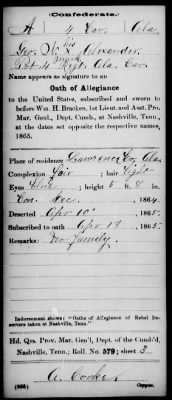 (Confederate.)
A 4 Cav. Ala.
Geo. N. his Alexander
mark
Pvt 4 Regt. Ala. Cav.
Name appears as signature to an
Oath of Allegiance
to the United States, subscribed and sworn to
before Wm. H. Bracken, 1st Lieut. and Asst. Pro.
Mar. Genl., Dept. Cumb., at Nashville, Tenn.,
at the dates set opposite the respective names,
1865.
Place of residence Lawrence Co, Ala.
Complexion Fair ; hair Light
Eyes Blue ; height 5 ft. 8 in.
Dec. 1864.
Deserted Apr 10 1865.
Subscribed to oath Apr 18 1865
Remarks: No family.
Indorsement shows: "Oaths of Allegiance of Rebel De-
serters taken at Nashville, Tenn."
Hd. Qrs. Prov. Mar. Gen'l, Dept. of the Cumb'd,
Nashville, Tenn.; Roll. No. 579; sheet 3
Copyist.